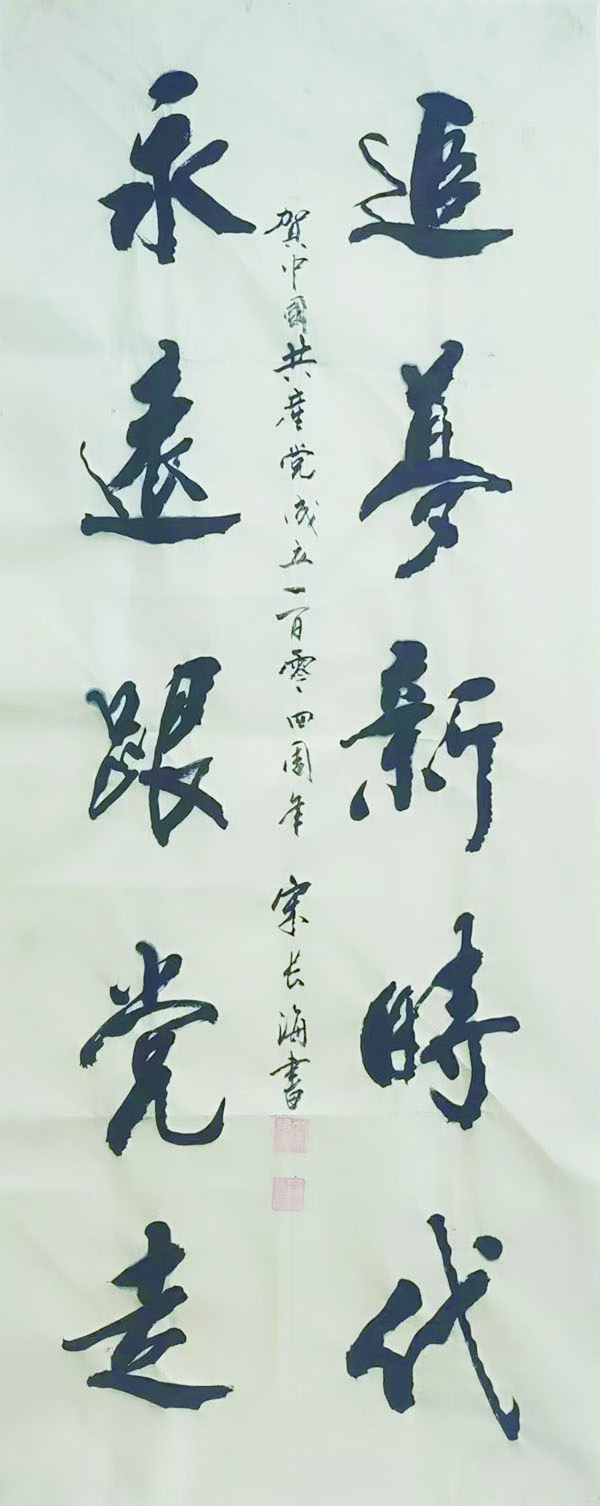 追夢新時代
永遠跟党走
賀中國共產党成立一百零四周年 宋長海書